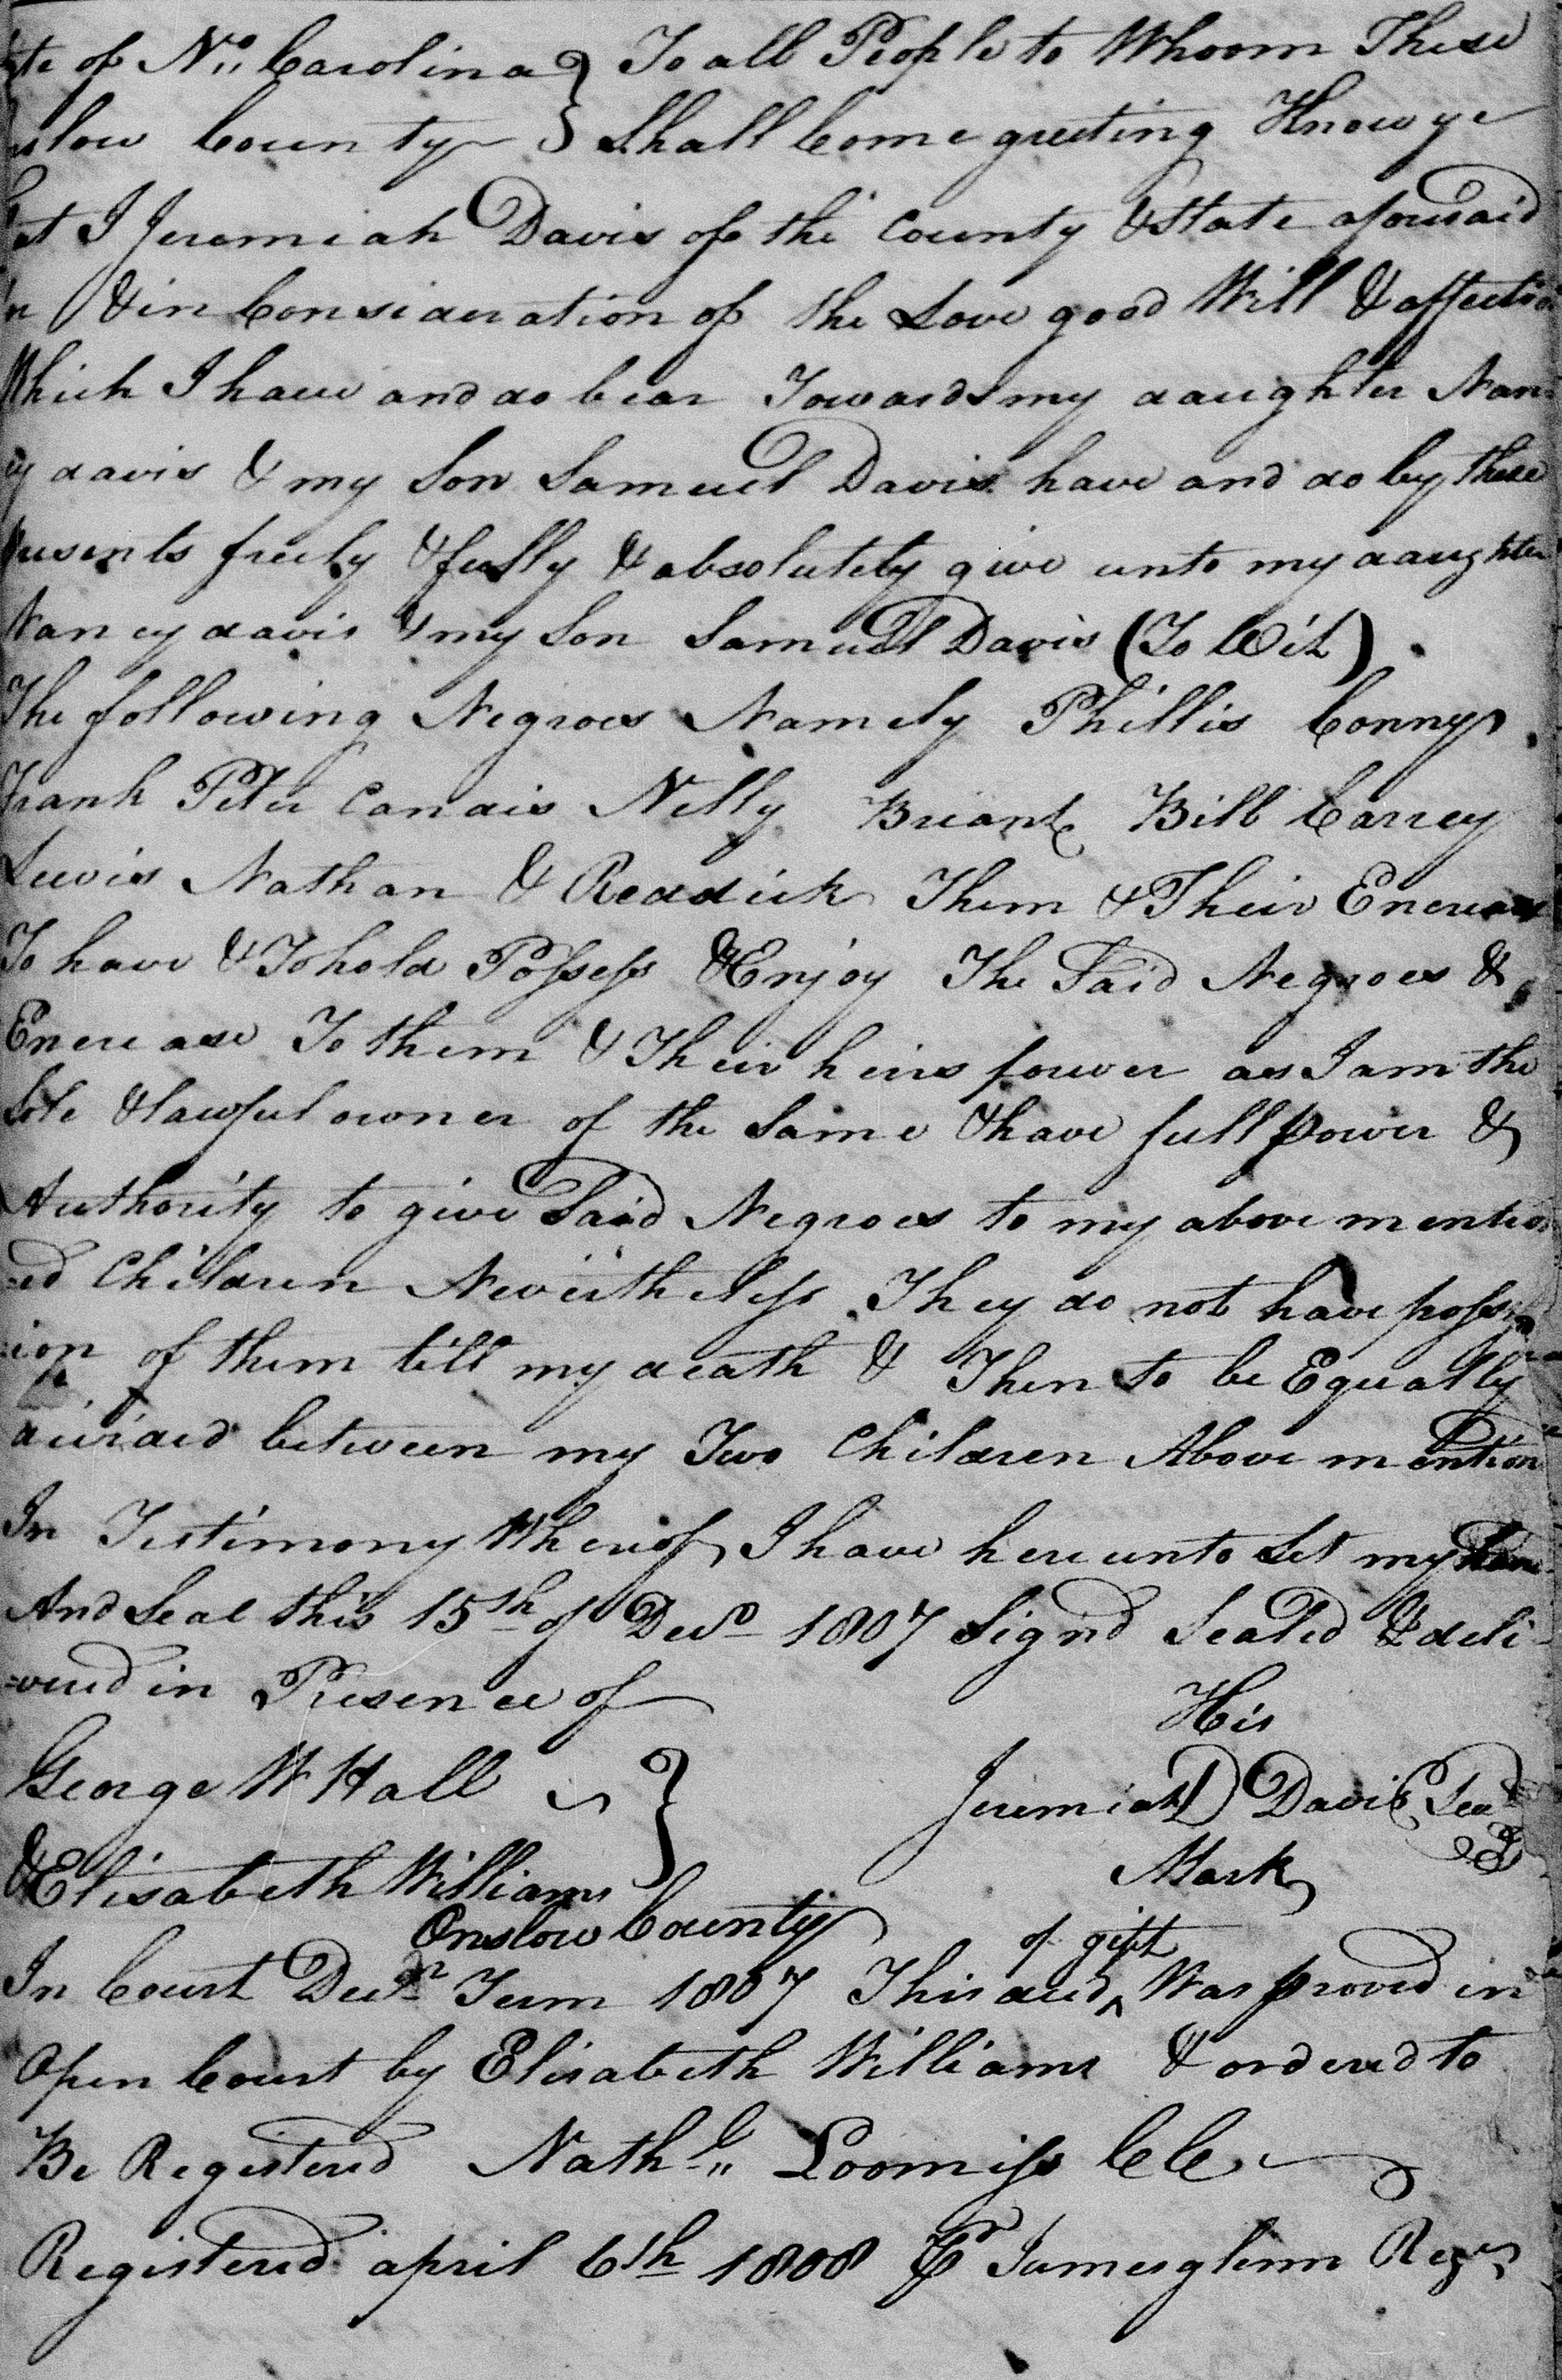 te of No. Carolina } To all People to Whoom These
slow County } Shall Come greeting Know ye
at I Jeremiah Davis of the County & State aforesaid
& in Consideration of the Love good Will & affectio
Which I have and do bear Towards my daughter Nan
cy davis & my Son Samuel Davis have and do by these
presents freely & fully & absolutely give unto my daughter
Nancy davis & my Son Samuel Davis (To Wit)
The following Negroes Namely Phillis Conny
Frank Peter Candis Nelly Briant Bill Carrey
Lewis Nathan & Reddick Them & Their Encrease
To have & To hold Possess & Enjoy The Said Negroes &
Encrease To them & Their heirs forever as I am the
Sole & lawful owner of the Same & have full power &
Authority to give Said Negroes to my above mention
=ed Children Nevertheless They do not have possess
ion of them till my death & Then to be Equally
divided between my Two Children Above mention
In Testimony Whereof I have hereunto Set my han
And Seal this 15th of Decr 1807 Signd Sealed & deli-
=vered in Presence of
His
George W Hall } Jeremiah D Davis Seal
Mark
& Elisabeth Williams
Onslow County
In Court Decr Term 1807 This deed ^of gift Was proved in
Open Court by Elisabeth Williams & ordered to
Be Registered Nathl. Loomiss CC
Registered april 6th 1808 Pr James glenn Regr